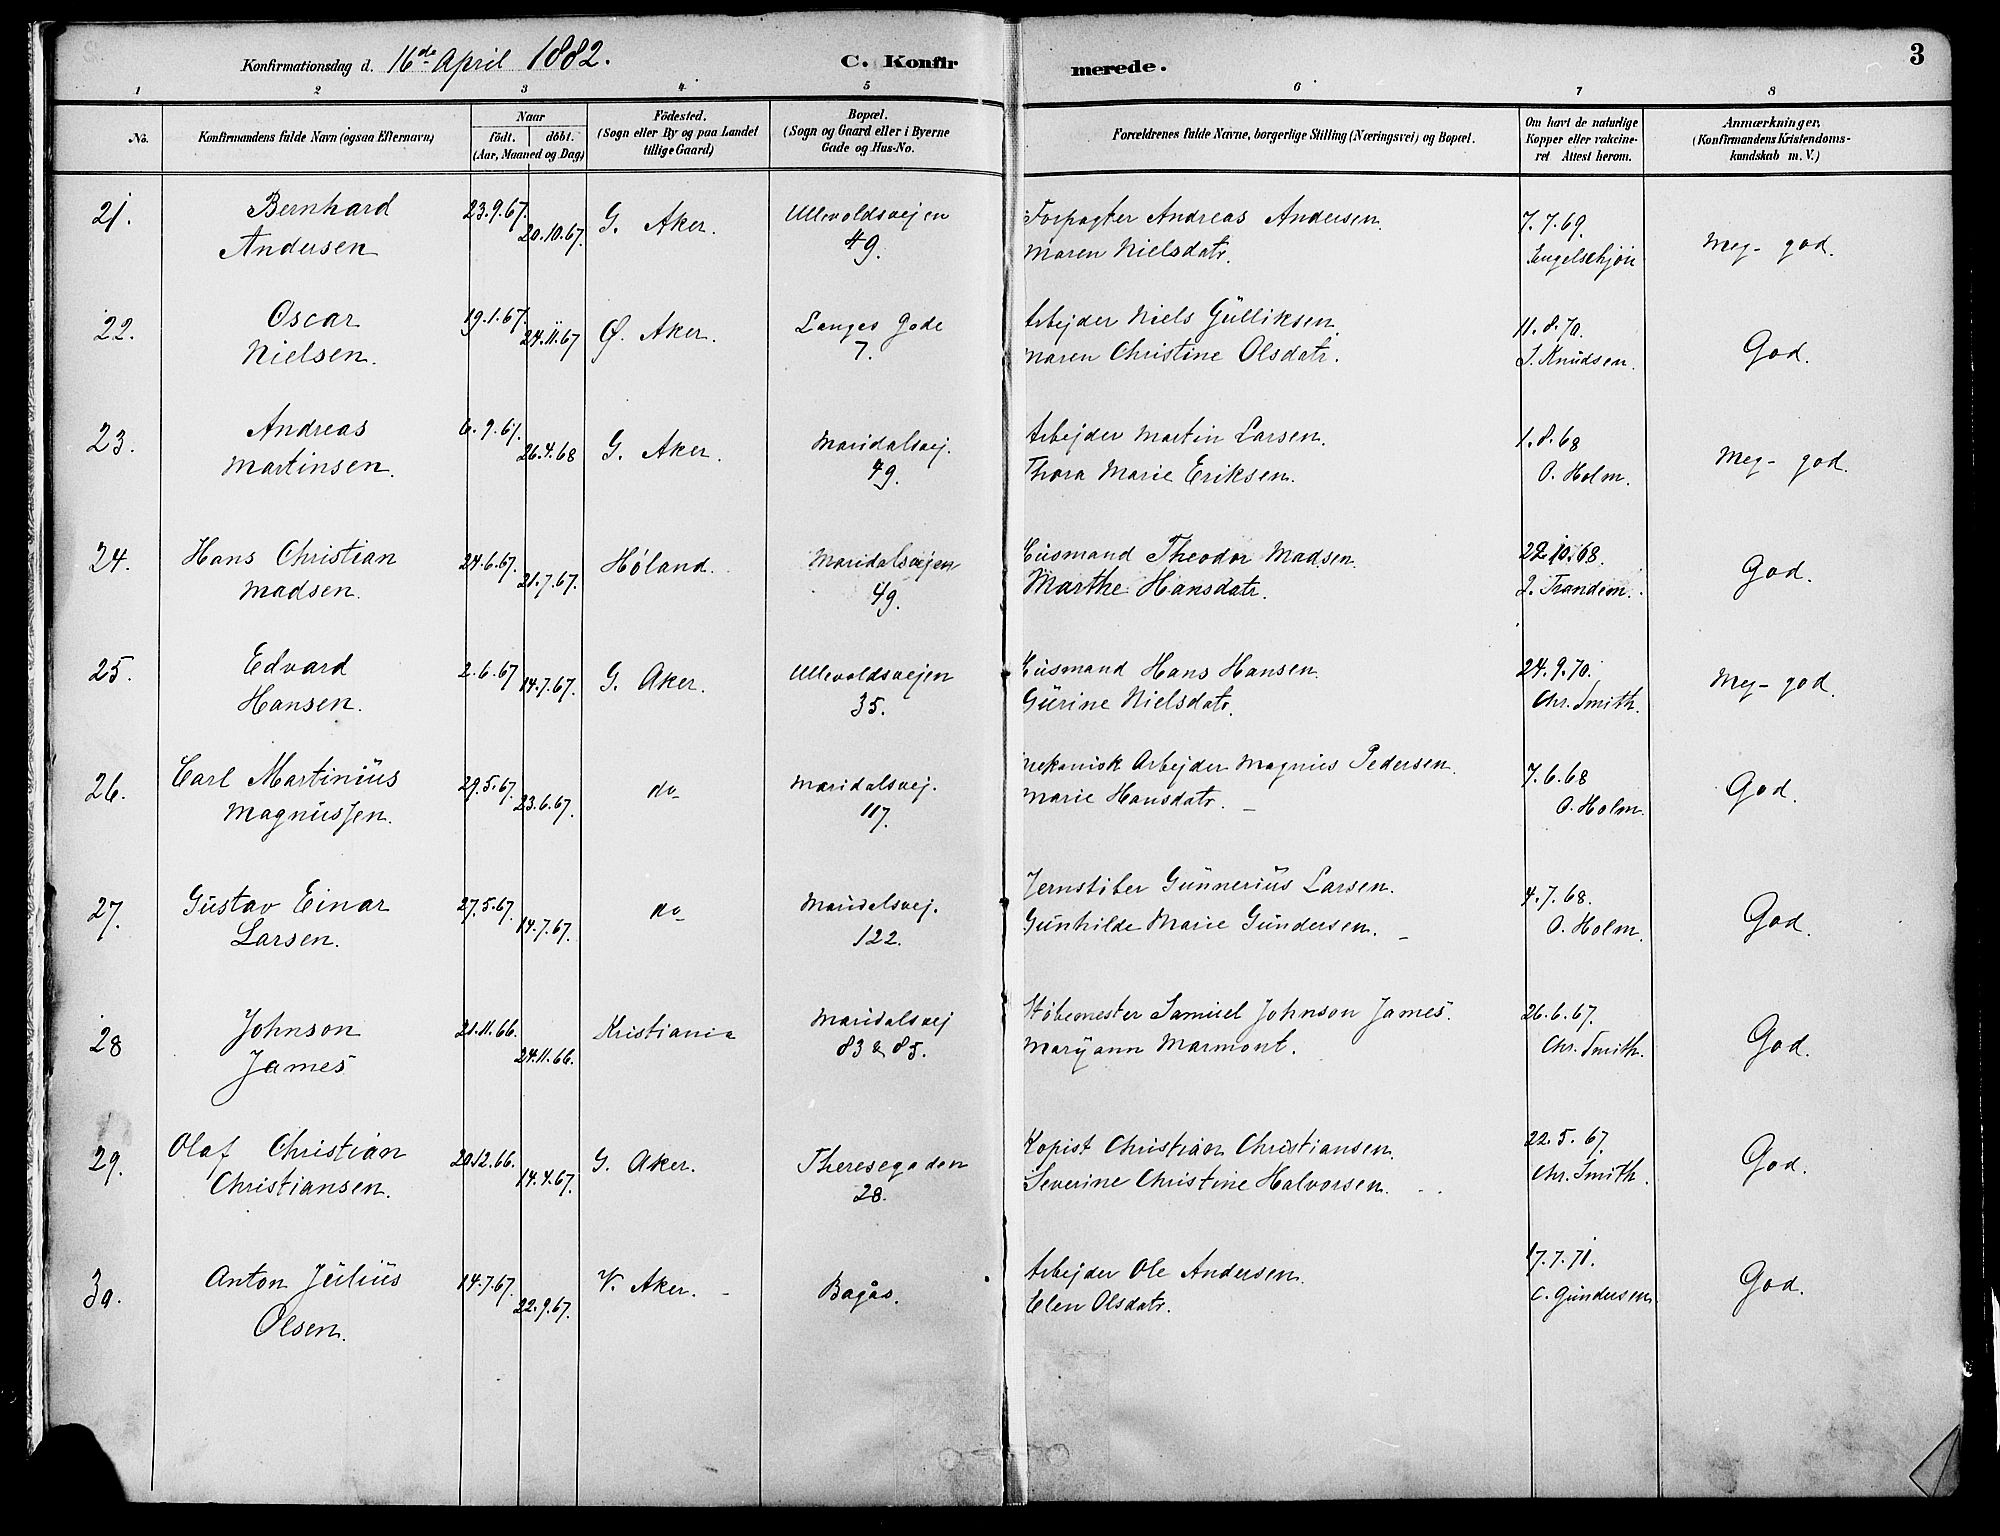 Konfirmationsdag d. 16de April 1882.
C. Konfirmerede.
3
1 2 3 4 5 6 7 8
No.
Konfirmandens fulde Navn (ogsaa Efternavn)
Naar
födt. döbt.
(Aar, Maaned og Dag)
Födested.
(Sogn eller By og paa Landet
tillige Gaard)
Bopæl.
(Sogn og Gaard eller i Byerne
Gade og Hus-No.
Forældrenes fulde Navne, borgerlige Stilling (Næringsvei) og Bopæl.
Om havt de naturlige
Kopper eller vakcine-
ret Attest herom.
Anmærkninger.
(Konfirmandens Kristendoms-
kundskab m. V.)
21. Bernhard 23.9.67. 20.10.67. G. Aker. Ullevoldsvejen Forpagter Andreas Andersen. 7.7.69. Meg- god.
Andersen 49. Maren Nielsdatr. Engelschjön
22. Oscar 19.1.67. 24.11.67 Ø. Aker. Langes Gade Arbejder Niels Gulliksen. 11.8.70. God.
Nielsen. 7. Maren Christine Olsdatr. S. Knudsen.
23. Andreas 6.9.67. 26.4.68 G. Aker. Maridalsvej. Arbejder Martin Larsen. 1.8.68 Meg- god.
Martinsen. 49. Thora Marie Eriksen. O. Holm.
24. Hans Christian 24.6.67. 21.7.67. Høland. Maridalsvejen Husmand Theodor Madsen. 22.10.68. God.
Madsen. 49. Marthe Hansdatr. J. Trandem.
25. Edvard 2.6.67 14.7.67. G. Aker. Ullevoldsvejen Husmand Hans Hansen. 24.9.70. Meg- god.
Hansen. 35. Gurine Nielsdatr. Chr. Smith.
26. Carl Martinius 29.5.67. 23.6.67. do Maridalsvej. Mekanisk Arbejder Magnus Pedersen. 7.6.68 God.
Magnussen. 117. Marie Hansdatr. O. Holm.
27. Gustav Einar 27.5.67. 14.7.67. do Maridalsvej. Jernstøber Gunnerius Larsen. 4.7.68. God.
Larsen. 122. Gunhilde Marie Gundersen. O. Holm.
28 Johnson 21.11.66. 24.11.66. Kristiania Maridalsvej Støbemester Samuel Johnson James. 26.6.67. God.
James 83 & 85. Maryann Marmont. Chr. Smith.
29. Olaf Christian 20.12.66. 14.4.67. G. Aker. Theresegaden Kopist Christian Christiansen. 22.5.67. God.
Christiansen. 28. Severine Christine Halvorsen. Chr. Smith.
30. Anton Julius 14.7.67. 22.9.67. V. Aker. Bagås. Arbejder Ole Andersen. 17.7.71. God.
Olsen. Elen Olsdatr. C. Gundersen.